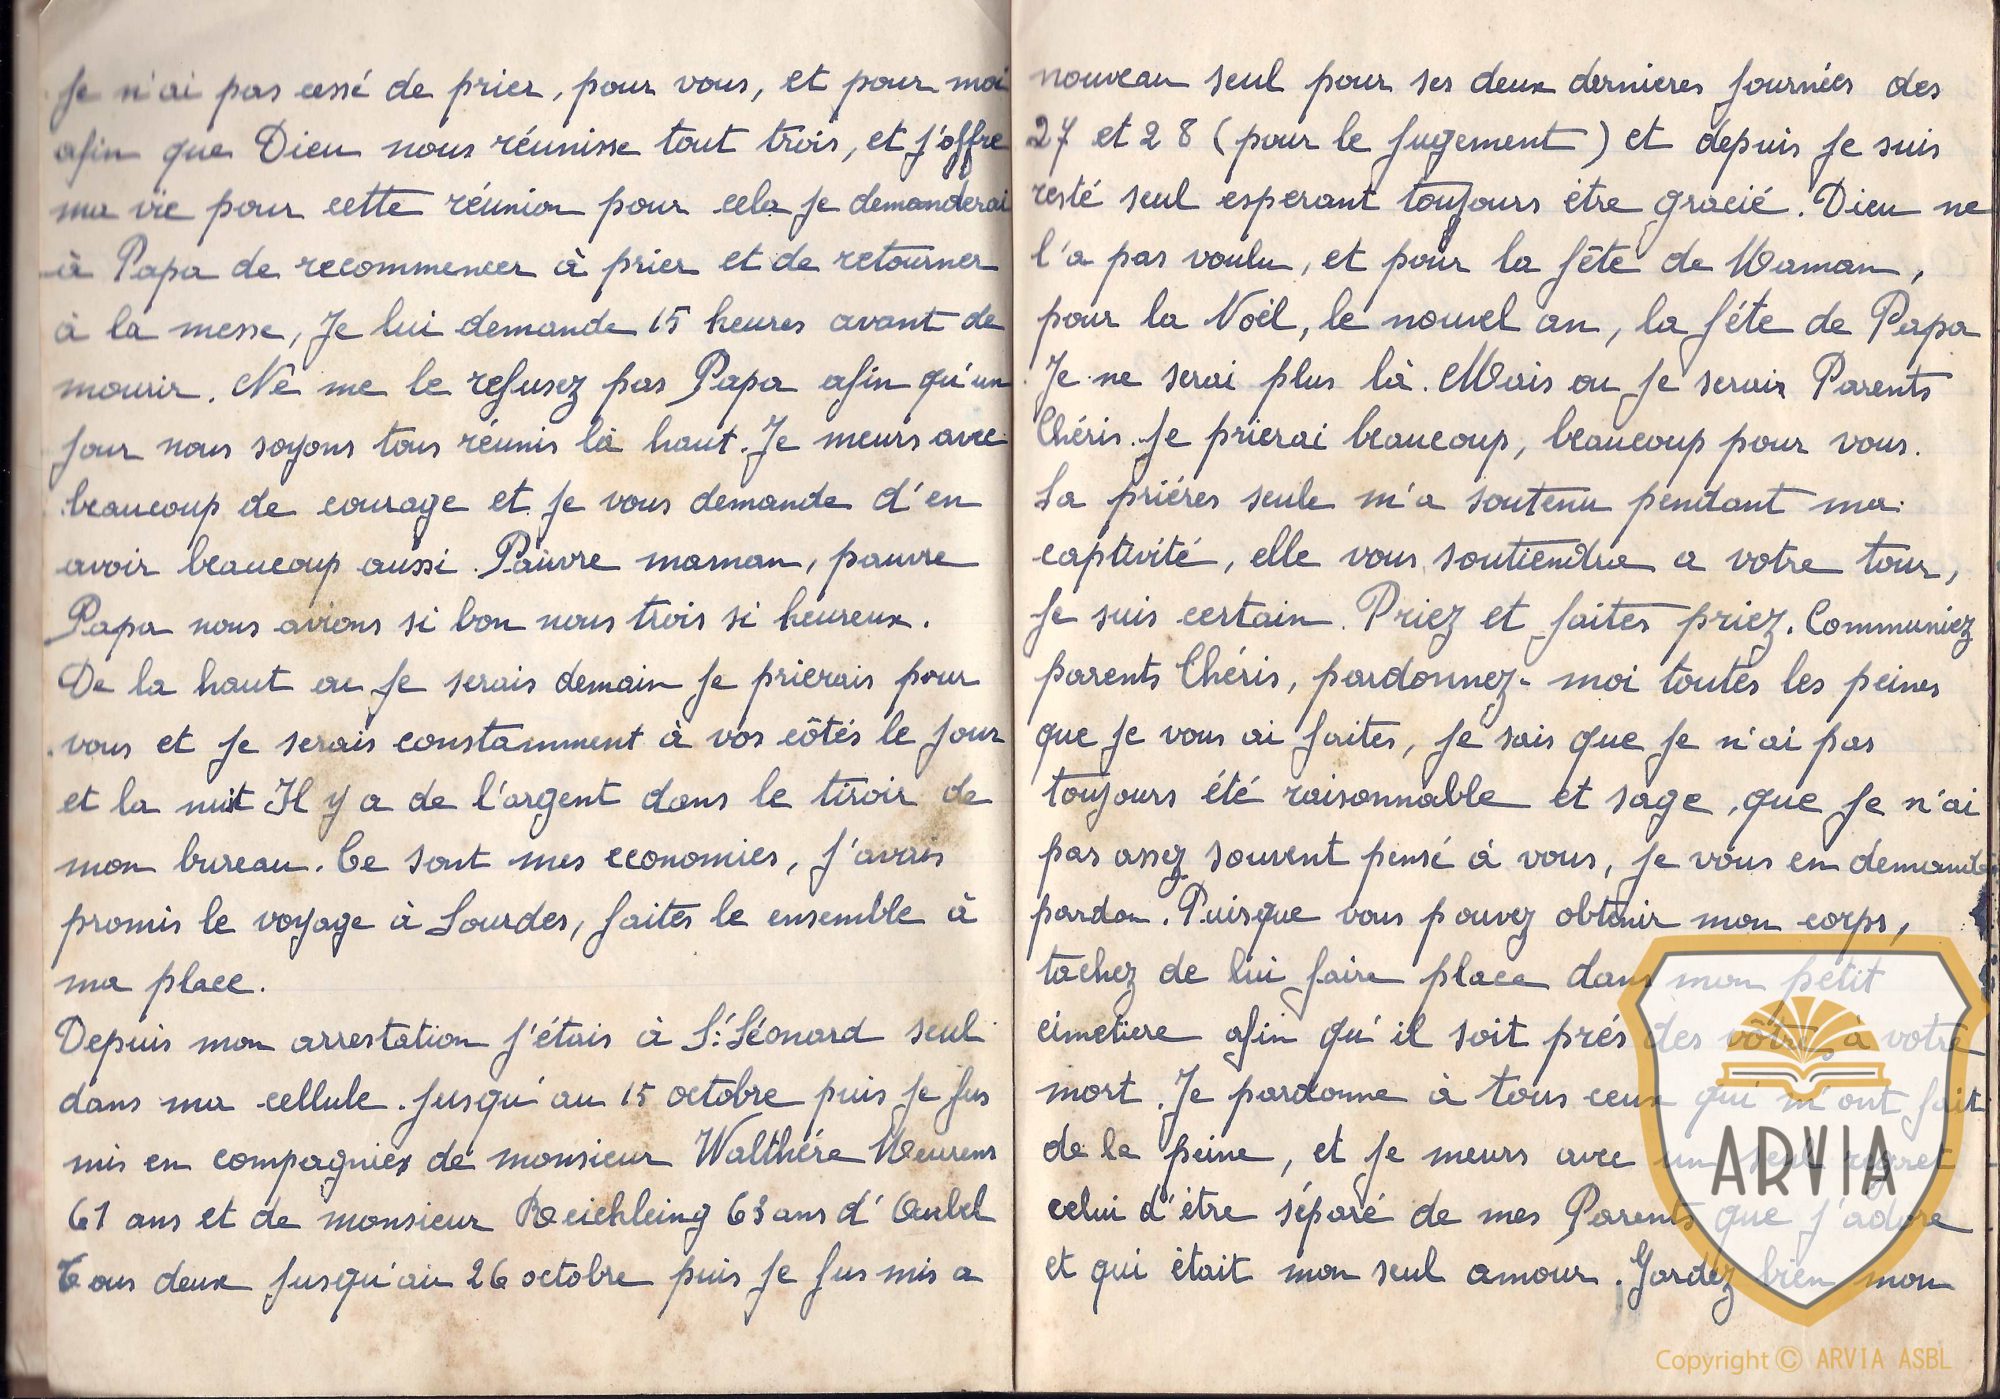 Je n'ai pas cessé de prier, pour vous, et pour moi
afin que Dieu nous réunisse tout trois, et j'offre
ma vie pour cette réunion pour cela je demanderai
à Papa de recommencer à prier et de retourner
à la messe, Je lui demande 15 heures avant de
mourir. Ne me le refusez pas Papa afin qu'un
jour nous soyons tous réunis là haut. Je meurs avec
beaucoup de courage et je vous demande d'en
avoir beaucoup aussi. Pauvre maman, pauvre
Papa nous avions si bon nous trois si heureux.
De la haut ou je serais demain je prierais pour
vous et je serais constamment à vos côtés le jour
et la nuit Il y a de l'argent dans le tiroir de
mon bureau. Ce sont mes economies, j'avais
promis le voyage à Lourdes, faites le ensemble à
ma place.
Depuis mon arrestation j'étais à St Léonard seul
dans ma cellule. Jusqu'au 15 octobre puis je fus
mis en compagnies de monsieur Walthère Meurens
61 ans et de monsieur 63 ans d'Aubel
Tous deux jusqu'au 26 octobre puis je fus mis a
nouveau seul pour ses deux dernieres journées des
27 et 28 (pour le jugement) et depuis je suis
resté seul esperant toujours être gracié. Dieu ne
l'a pas voulu, et pour la fête de Maman,
pour la Noël, le nouvel an, la fête de Papa
Je ne serai plus là. Mais ou je serais Parents
Chéris. Je prierai beaucoup, beaucoup pour vous.
La priéres seule m'a soutenu pendant ma
captivité, elle vous soutiendra a votre tour,
je suis certain. Priez et faites priez. Communiez
parents Chéris, pardonnez-moi toutes les peines
que je vous ai faites, je sais que je n'ai pas
toujours été raisonnable et sage, que je n'ai
pas assez souvent pensé à vous, je vous en demande
pardon. Puisque vous pouvez obtenir mon corps,
tachez de lui faire place dans mon petit
cimetiere afin qu'il soit prés des vôtres à votre
mort. Je pardonne à tous ceux qui m'ont fait
de la peine, et je meurs avec un seul regret
celui d'être séparé de mes Parents que j'adore
et qui était mon seul amour. Gardez bien mon
ARVIA
Copyright © ARVIA ASBL